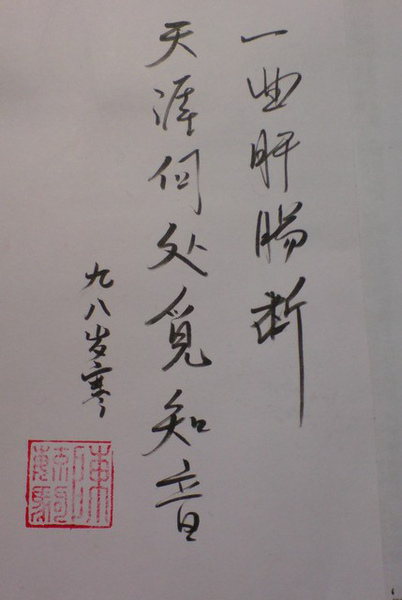 一曲肝肠断
天涯何处觅知音
九八岁寒